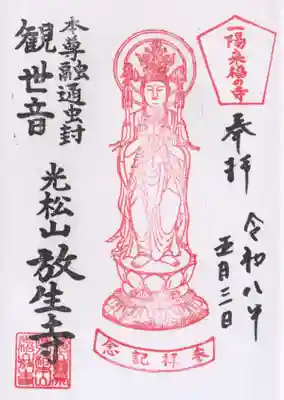 一陽来福の寺
奉拝
令和八年
五月三日
奉拝記念
本尊融通虫封
観世音
光松山放生寺